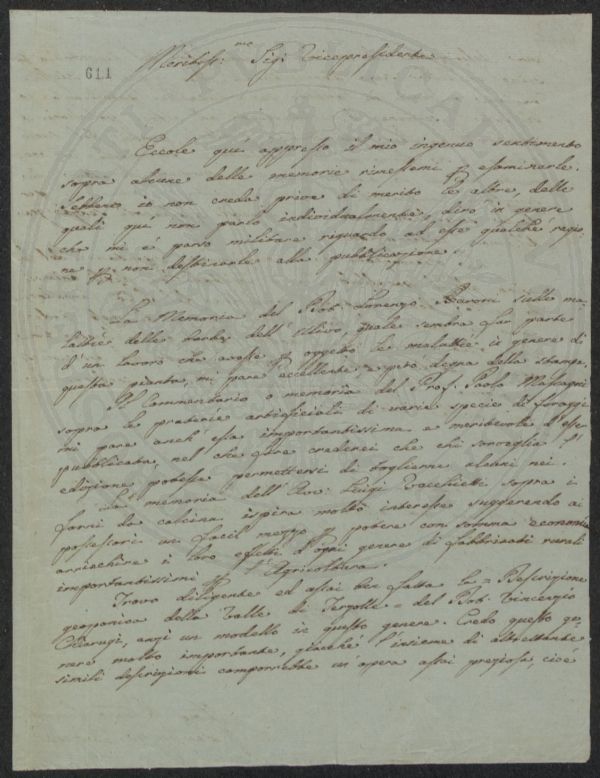 611
Meritiss:mo Sigr Vicepresidente
Eccole quì appresso il mio ingenuo sentimento
sopra alcune delle memorie rimessemi p esaminarle.
Sebbene io non creda prive di merito le altre, delle
quali quì non parlo individualmente, dirò in genere
che mi è parso militare riguardo ad esse qualche ragio-
ne p non destinarle alla pubblicazione.
La Memoria del Dot. Lorenzo Baroni sulle ma-
lattie delle barbe dell'Ulivo, quale sembra far parte
d'un lavoro che avesse p oggetto le malattie in genere di
questa pianta, mi pare eccellente e degna della stampa.
Il Commentario o memoria del Prof. Paolo Mascagni
sopra le praterie artificiali di varie specie di foraggi
mi pare anch'essa importantissima e meritevole d'esse
pubblicata, nel che fare crederei che chi sorveglia l'
edizione potesse permettersi di toglierne alcuni nei.
La memoria dell' Avv: Luigi Tracchietti sopra i
forni da calcina ispira molto interesse suggerendo ai
possessori un facil mezzo p potere con somma economia
arricchire i loro effetti d'ogni genere di fabbricati rurali
importantissimi p l'Agricoltura.
Trovo diligente ed assai ben fatta la = Descrizione
georgonica della Valle di Tergolla = del Dot. Vincenzio
Chiarugi, anzi un modello in questo genere. Credo questo ge-
nere molto importante, giacchè l'insieme di altrettante
simili descrizioni comporrebbe un'opera assai preziosa, cioè